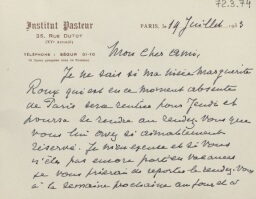 72.3.74
Institut Pasteur
25, Rue Dutot
(XVe Arrondt)
TÉLÉPHONE : SÉGUR 01-10
PARIS, le 19 Juillet 1923
Mon cher ami,
Je ne sais si ma nièce Marguerite
Roux qui est en ce moment absente
de Paris sera rentrée pour Jeudi et
pourra se rendre au rendez vous que
vous lui avez si aimablement
réservé. Je m'en excuse et si vous
n'êtes pas encore parti en vacances
je vous prierai de reporter le rendez-vous
à la semaine prochaine au jour et à